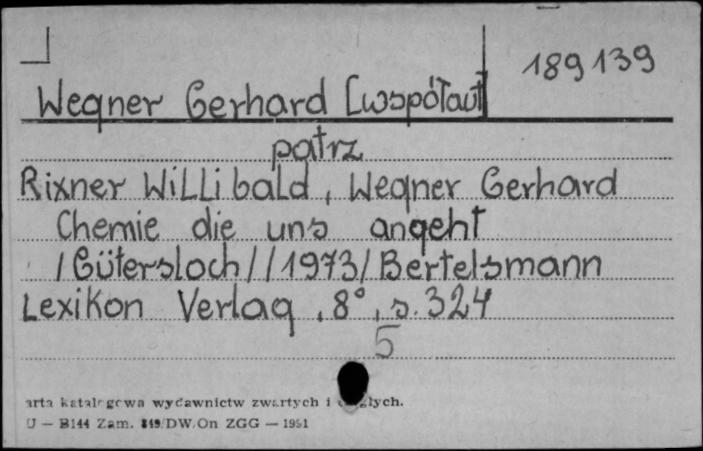 189139
Wegner Gerhard [współaut]
patrz
Rixner Willibald, Wegner Gerhard
Chemie die uns angeht
/Gütersloch//1973/Bertelsmann
Lexikon Verlag, 8°, s. 324
5
arta katalogowa wydawnictw zwartych i ciągłych.
U — B144 Zam. 849/DW/On ZGG — 1951